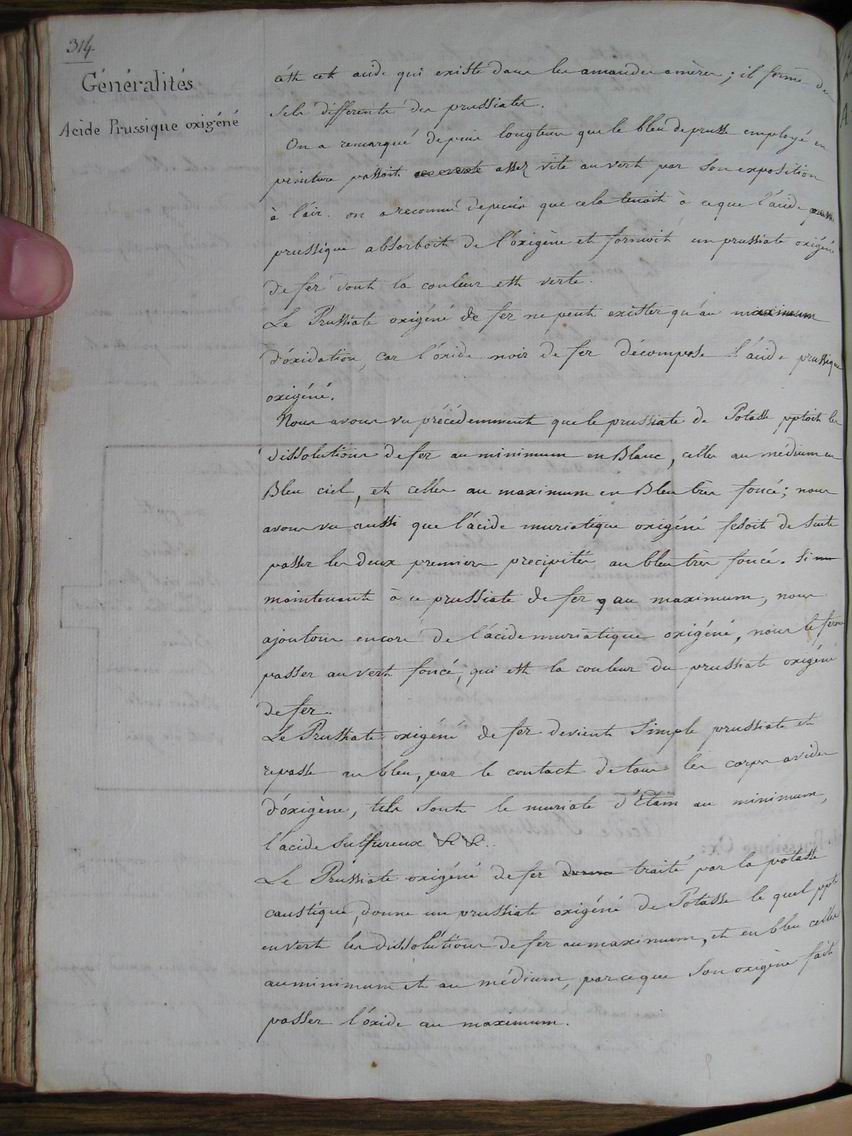 314.
Généralités
Acide Prussique oxigéné
c'est cet acide qui existe dans les amandes amères ; il forme des
sels différents des prussiates.
On a remarqué depuis longtems que le bleu de prusse employé en
peinture passoit assez vite au vert par son exposition
à l'air. on a reconnu depuis que cela tenoit à ce que l'acide
prussique absorboit de l'oxigène et formoit un prussiate oxigéné
de fer dont la couleur est verte.
Le Prussiate oxigéné de fer ne peut exister qu'au maximum
d'oxidation, car l'oxide noir de fer décompose l'acide prussique
oxigéné.
Nous avons vu précédemment que le prussiate de Potasse pptoit les
dissolutions de fer au minimum en Blanc, celles au médium en
Bleu ciel, et celles au maximum en Bleu très foncé ; nous
avons vu aussi que l'acide muriatique oxigéné fesoit de suite
passer les deux premiers precipités au bleu très foncé. Si
maintenant à ce prussiate de fer au maximum, nous
ajoutons encore de l'acide muriatique oxigéné, nous le ferons
passer au vert foncé, qui est la couleur du prussiate oxigéné
de fer.
Le Prussiate oxigéné de fer devient simple prussiate et
repasse au bleu, par le contact de tous les corps avides
d'oxigène, tels sont le muriate d'Etain au minimum,
l'acide sulfureux &c &c.
Le Prussiate oxigéné de fer traité par la potasse
caustique donne un prussiate oxigéné de Potasse le quel ppte
en vert les dissolutions de fer au maximum, et en bleu celles
au minimum et au médium, parceque son oxigène fait
passer l'oxide au maximum.